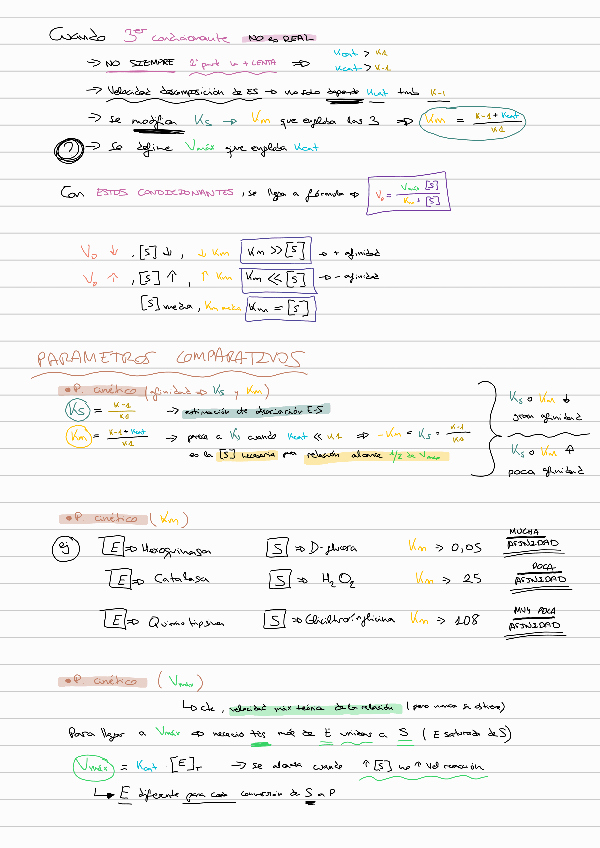 Cuando 3er condicionante NO es REAL
→ NO SIEMPRE 2ª part la + LENTA ⇒ Kcat > K1
Kcat > K-1
→ Velocidad descomposición de ES → no solo depende Kcat tmb K-1
→ Se modifica Ks → Km que engloba las 3 ⇒ Km = K-1 + Kcat / K1
? → Se define Vmáx que engloba Kcat
Con ESTOS CONDICIONANTES, se llega a fórmula ⇒ V₀ = Vmáx [S] / Km + [S]
V₀ ↓ , [S] ↓ , ↓ Km Km >> [S] → + afinidad
V₀ ↑ , [S] ↑ , ↑ Km Km << [S] → - afinidad
[S] media, Km media Km = [S]
PARAMETROS COMPARATIVOS
• P. cinético (afinidad ⇒ Ks y Km)
Ks = K-1 / K1 → estimación de disociación E-S
Km = K-1 + Kcat / K1 → pasa a Ks cuando Kcat << K1 ⇒ -Km = Ks = K-1 / K1
es la [S] necesaria para relación alcance 1/2 de Vmáx
Ks o Km ↓
gran afinidad
Ks o Km ↑
poca afinidad
• P cinético (Km)
ej E ⇒ Hexoquinasa S ⇒ D-glucosa Km → 0,05 MUCHA AFINIDAD
E ⇒ Catalasa S ⇒ H₂O₂ Km → 25 POCA AFINIDAD
E ⇒ Quimotripsina S ⇒ Km → 108 MUY POCA AFINIDAD
• P cinético (Vmáx)
↳ cte, velocidad máx teórica de la relación (pero nunca se obtiene)
Para llegar a Vmáx ⇒ necesito más de E unidas a S (E saturada de S)
Vmáx = Kcat · [E]T → Se alcanza cuando ↑ [S] no ↑ Vel reacción
↳ E diferente para cada conversión de S a P